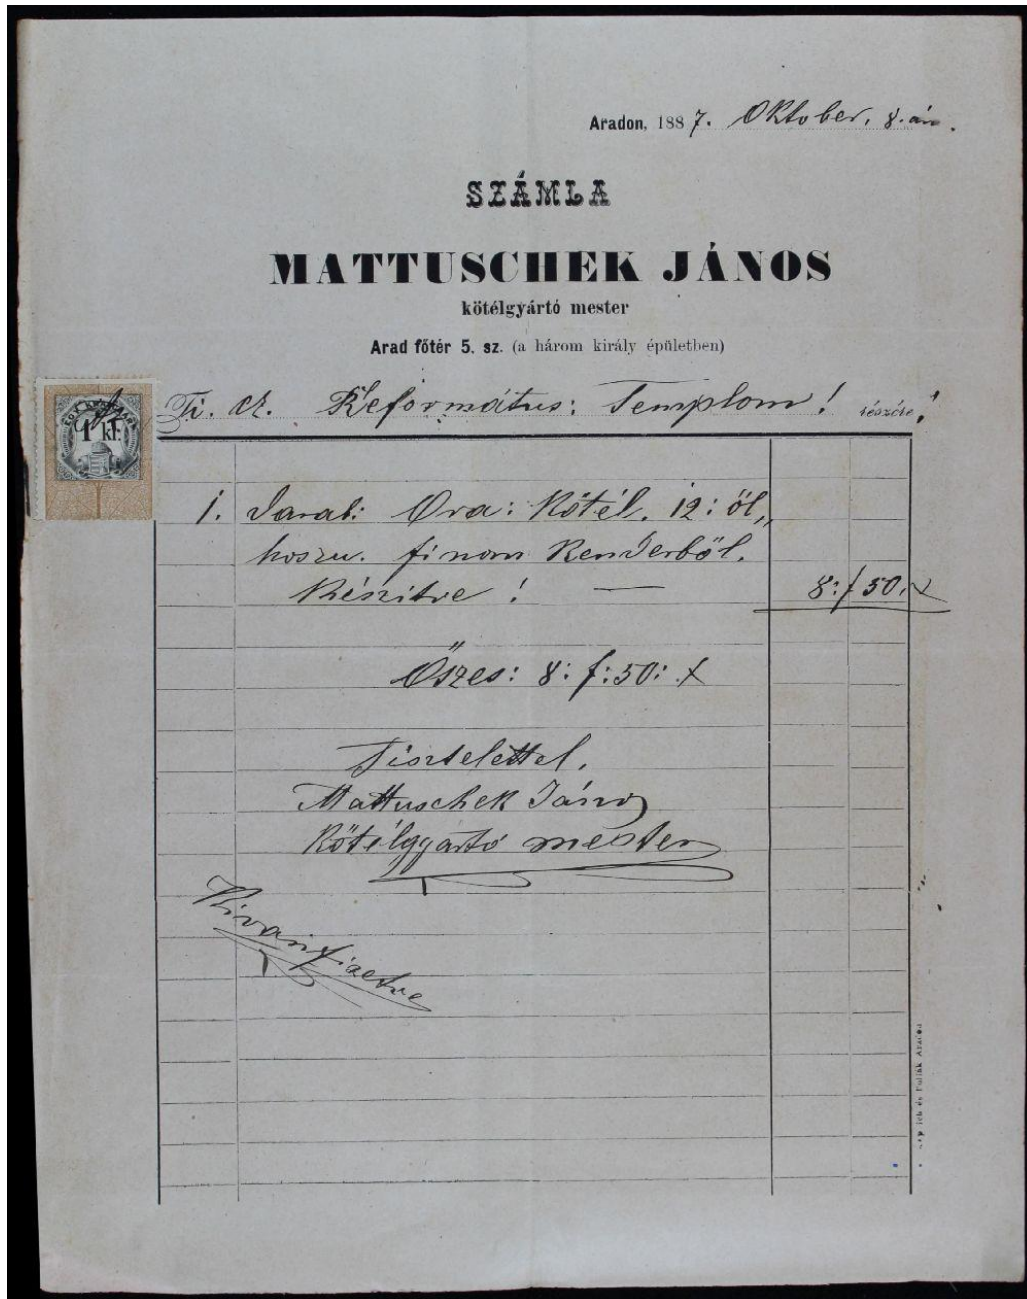 Aradon, 1887. Oktober. 8. án.
SZÁMLA
MATTUSCHEK JÁNOS
kötélgyártó mester
Arad főtér 5. sz. (a három király épületben)
Ti. cz. Református: Templom! részére!
1 kr.
1. Darab: Ora: Kötél. 12: öl,,
hoszu. finom Kenderböl.
Készitve! — 8: f 50. x
Öszes: 8: f: 50: x
Tisztelettel,
Mattuschek János
Kötélggartó mester
Ki van fizetve
és Pollák Aradon